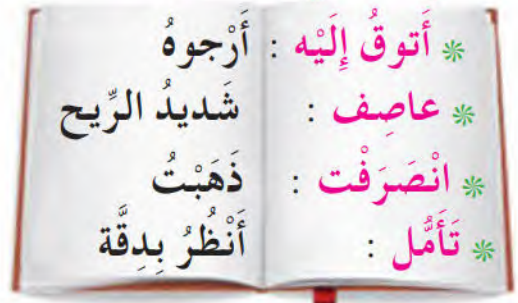 ❋ أَتوقُ إِلَيْه : أَرْجوهُ
❋ عاصِف : شَديدُ الرِّيح
❋ انْصَرَفْت : ذَهَبْتُ
❋ تَأَمُّل : أَنْظُرُ بِدِقَّة